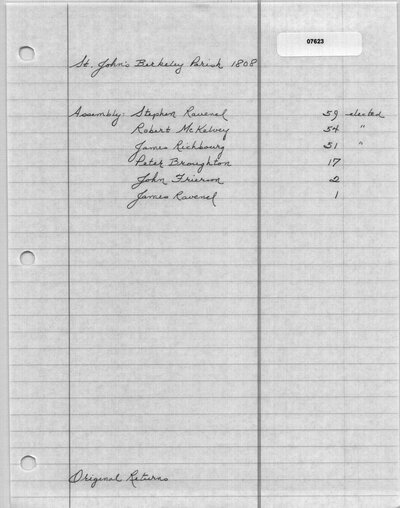 07623
St. John's Berkeley Parish 1808
Assembly: Stephen Ravenel 59 elected
Robert McKelvey 54 "
James Richbourg 51 "
Peter Broughton 17
John Frierson 2
James Ravenel 1
Original Returns